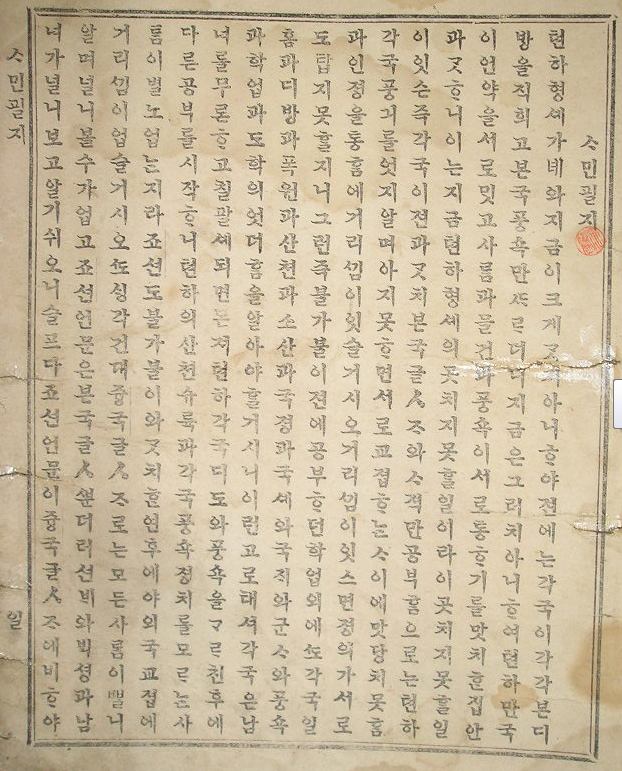 ᄉᆞ민필지
텬하형셰가녜와지금이크게ᄀᆞᆺ지아니ᄒᆞ야젼에ᄂᆞᆫ각국이각각본디
방을직희고본국풍쇽만ᄯᆞᄅᆞ더니지금은그러치아니ᄒᆞ여텬하만국
이언약을서로밋고사ᄅᆞᆷ과물건과풍쇽이서로통ᄒᆞ기를맛치ᄒᆞᆫ집안
과ᄀᆞᆺᄒᆞ니이ᄂᆞᆫ지금텬하형셰의곳치지못ᄒᆞᆯ일이라이곳치지못ᄒᆞᆯ일
이잇슨즉각국이젼과ᄀᆞᆺ치본국글ㅅᄌᆞ와ᄉᆞ젹만공부ᄒᆞᆷ으로ᄂᆞᆫ텬하
각국풍긔를엇지알며아지못ᄒᆞ면서로교졉ᄒᆞᄂᆞᆫᄉᆞ이에맛당치못ᄒᆞᆷ
과인졍을통ᄒᆞᆷ에거리ᄭᅵᆷ이잇슬거시오거리ᄭᅵᆷ이잇스면졍의가서로
도탑지못ᄒᆞᆯ지니그런즉불가불이젼에공부ᄒᆞ던학업외에ᄯᅩ각국일
홈과디방과폭원과산쳔과소산과국졍과국셰와국ᄌᆡ와군ᄉᆞ와풍쇽
과학업과도학의엇더ᄒᆞᆷ을알아야ᄒᆞᆯ거시니이런고로태셔각국은남
녀를무론ᄒᆞ고칠팔셰되면몬져텬하각국디도와풍쇽을ᄀᆞᄅᆞ친후에
다른공부를시작ᄒᆞ니텬하의산쳔슈륙과각국풍쇽졍치를모ᄅᆞᄂᆞᆫ사
ᄅᆞᆷ이별노업ᄂᆞᆫ지라죠션도불가불이와ᄀᆞᆺ치ᄒᆞᆫ연후에야외국교졉에
거리ᄭᅵᆷ이업슬거시오ᄯᅩᄉᆡᆼ각건대즁국글ㅅᄌᆞ로ᄂᆞᆫ모든사ᄅᆞᆷ이ᄲᆞᆯ니
알며널니볼수가업고죠션언문은본국글ㅅᄲᅮᆫ더러션ᄇᆡ와ᄇᆡᆨ셩과남
녀가널니보고알기쉬오니슬프다죠션언문이즁국글ㅅᄌᆞ에비ᄒᆞ야
ᄉᆞ민필지
일